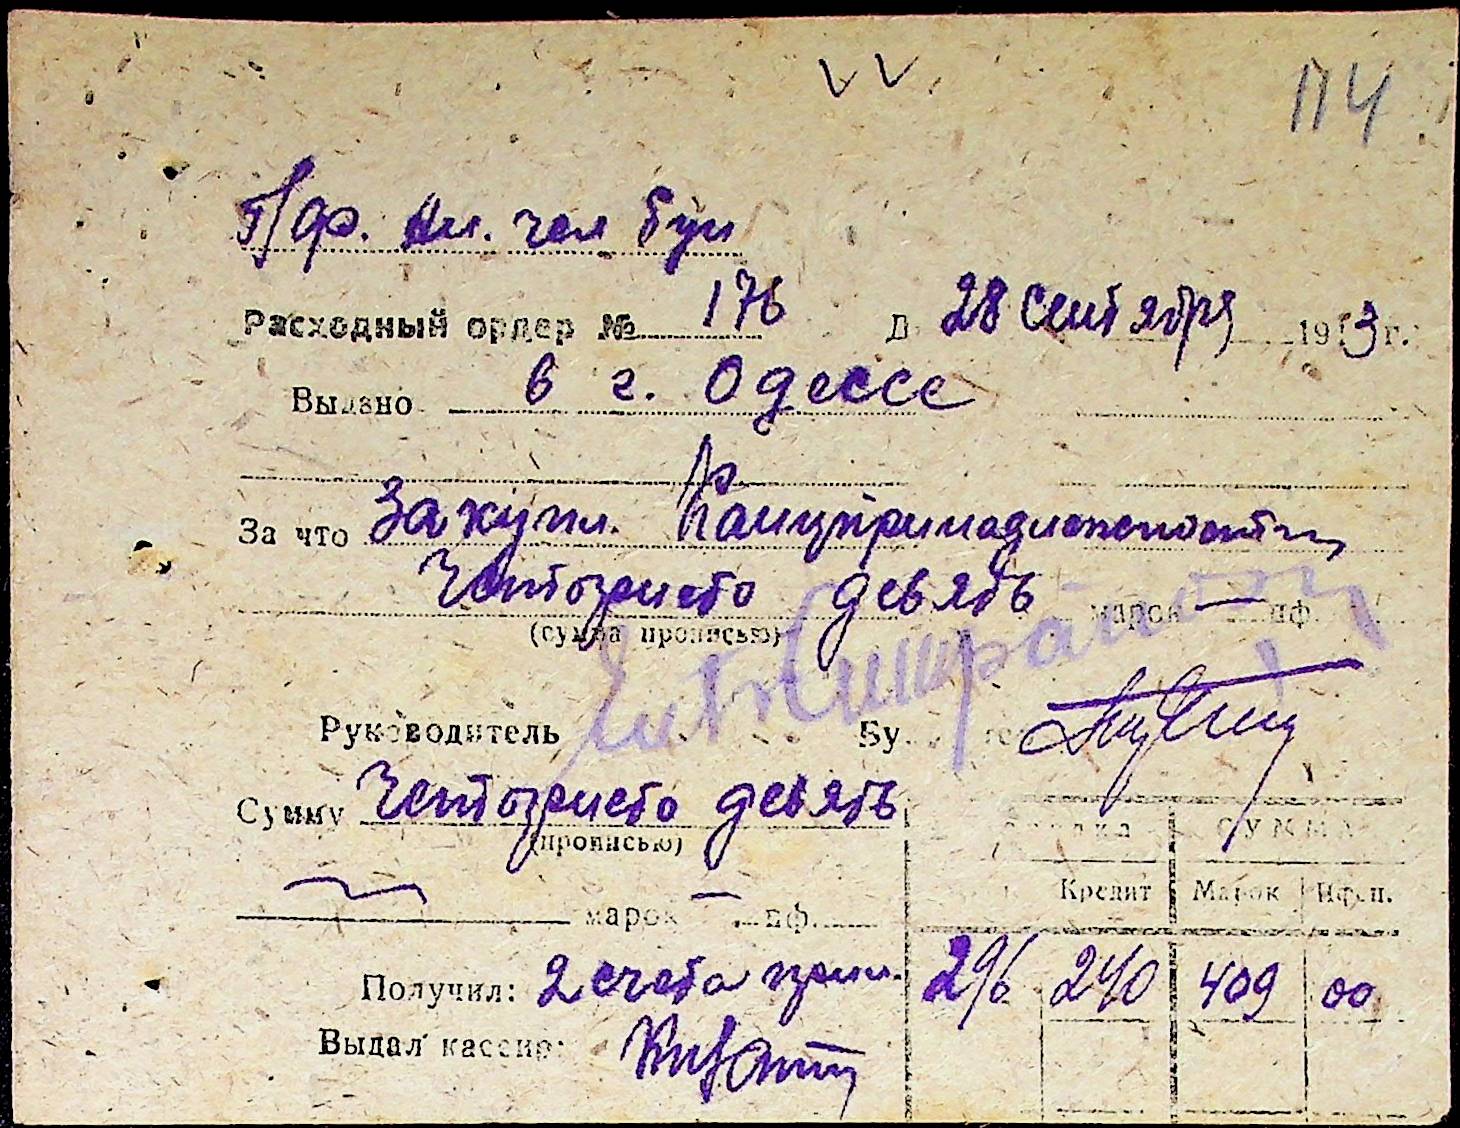 114
Расходный ордер № 176 Д 28 Сентября 1943 г.
Выдано в г. Одессе
За что Закупл. Канцпринадлежности
Четыриста девять марок — пф.
(сумма прописью)
Руководитель Бу
Сумму Четыриста девять
(прописью)
марок — пф.
Сумма
Кредит Марок Пфен.
296 240 409 00
Получил: 2 счета прил.
Выдал кассир: